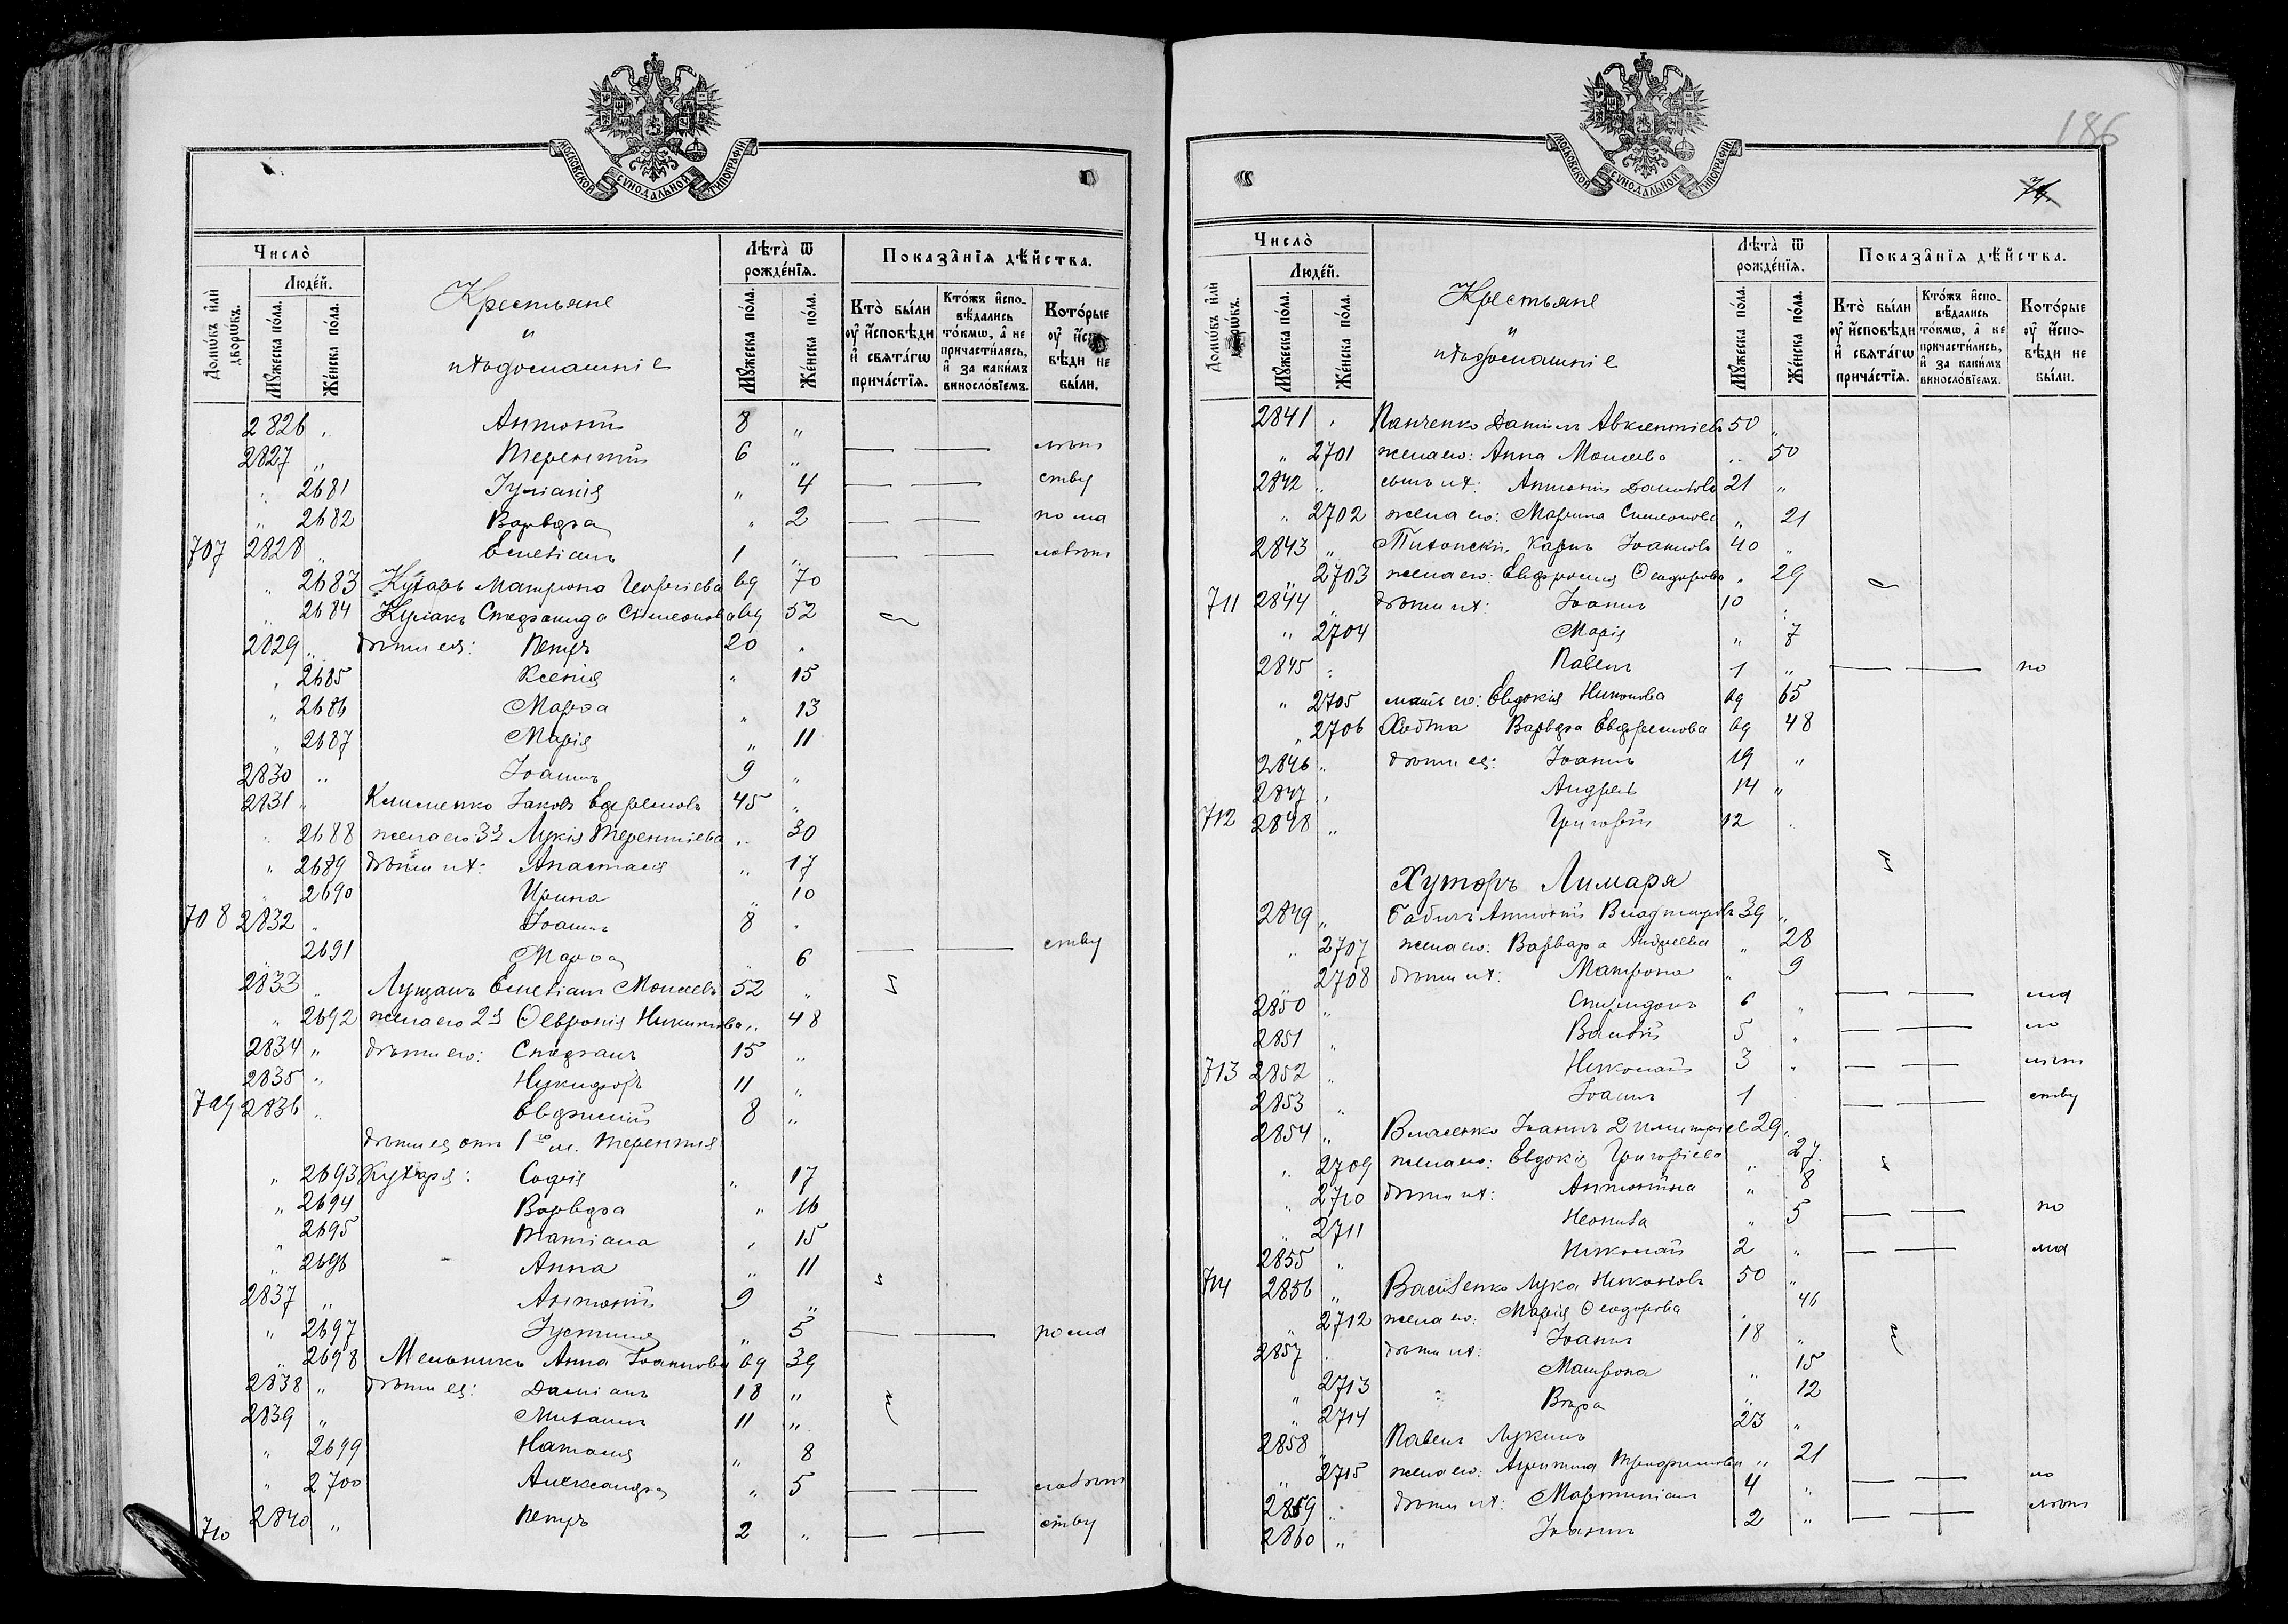 МОСКОВСКОЙ СУНОДАЛЬНОЙ ТИПОГРАФІИ
Число̀
Домѡ́въ и҆лѝ дворѡ́въ.
Люде́й.
Мꙋ́жеска по́ла.
Же́нска по́ла.
Крестьяне
и
ихъ домашніе
Лѣта̀ ѿ рожде́нїѧ.
Мꙋ́жеска по́ла.
Же́нска по́ла.
Показа̑нїѧ дѣ́йства.
Кто̀ бы́ли ᲂу҆ и҆сповѣ́ди и҆ свѧта́гѡ прича́стїѧ.
Кто́жъ и҆сповѣ́дались то́кмѡ, а҆ не причасти́лись, и҆ за каки́мъ винословїемъ.
Кото́рые ᲂу҆ и҆сповѣ́ди не бы́ли.
2826 Антоній 8 "
2827 " Терентій 6 " — — лѣтн
" 2681 Іуліанія " 4 — — ству
" 2682 Варвара " 2 — — по ма
707 2828 " Емеліанъ 1 " — — лолѣтн
" 2683 Кухарь Матрона Георгіева вд 70
" 2684 Кулакъ Стефанида Симеонова вд 52
2829 " дѣти ея: Петръ 20 "
" 2685 Ксенія " 15
" 2686 Марѳа " 13
" 2687 Марія " 11
2830 " Іоаннъ 9 "
2831 " Клименко Іаковъ Ефремовъ 45 "
" 2688 жена его 3я Лукія Терентіева " 30
" 2689 дѣти ихъ: Анастасія " 17
" 2690 Ирина " 10
708 2832 " Іоаннъ 8 "
" 2691 Марѳа " 6 — — ству
2833 " Лущанъ Емеліанъ Моисеевъ 52 "
" 2692 жена его 2я Ѳевронія Никитова " 48
2834 " дѣти его: Стефанъ 15 "
2835 " Никифоръ 11 "
709 2836 " Евфимій 8 "
дѣти ея отъ 1го м. Терентія
" 2693 Кухаря: Софія " 17
" 2694 Варвара " 16
" 2695 Татіана " 15
" 2696 Анна " 11
2837 " Антоній 9 "
" 2697 Іустина " 5 — — по ма
" 2698 Мельникъ Анна Іоаннова вд 39
2838 " дѣти ея: Даміанъ 18 "
2839 " Михаилъ 11 "
" 2699 Наталія " 8
" 2700 Александра " 5 — — лолѣтн
710 2840 " Петръ 2 " — — ству
186
76
МОСКОВСКОЙ СУНОДАЛЬНОЙ ТИПОГРАФІИ
Число̀
Домѡ́въ и҆лѝ дворѡ́въ.
Люде́й.
Мꙋ́жеска по́ла.
Же́нска по́ла.
Крестьяне
и
ихъ домашніе
Лѣта̀ ѿ рожде́нїѧ.
Мꙋ́жеска по́ла.
Же́нска по́ла.
Показа̑нїѧ дѣ́йства.
Кто̀ бы́ли ᲂу҆ и҆сповѣ́ди и҆ свѧта́гѡ прича́стїѧ.
Кто́жъ и҆сповѣ́дались то́кмѡ, а҆ не причасти́лись, и҆ за каки́мъ винословїемъ.
Кото́рые ᲂу҆ и҆сповѣ́ди не бы́ли.
2841 " Панченко Даніилъ Авксентіевъ 50 "
" 2701 жена его: Анна Моисеева " 50
2842 " сынъ ихъ: Антоній Даниловъ 21 "
" 2702 жена его: Марина Симеонова " 21
2843 " Карпъ Іоанновъ 40 "
" 2703 жена его: Евфросинія Ѳеодорова " 29
711 2844 " дѣти ихъ: Іоаннъ 10 "
" 2704 Марія " 7
2845 " Павелъ 1 " — — по
" 2705 мать его: Евдокія Никонова вд 65
" 2706 Варвара Евфремова вд 48
2846 " дѣти ея: Іоаннъ 19 "
2847 " Андрей 14 "
712 2848 " Григорій 12 "
Хуторъ Лимаря
2849 " Бабичъ Антоній Владиміровъ 39 "
" 2707 жена его: Варвара Андреева " 28
" 2708 дѣти ихъ: Матрона " 9
2850 " Спиридонъ 6 " — — ма
2851 " Василій 5 " — — ло
713 2852 " Николай 3 " — — лѣтн
2853 " Іоаннъ 1 — — ству
2854 " Власенко Іоаннъ Димитріев 29 "
" 2709 жена его: Евдокія Григоріева " 27
" 2710 дѣти ихъ: Антонина " 8
" 2711 Неонила " 5 — — по
2855 " Николай 2 " — — ма
714 2856 " Василенко Лука Никоновъ 50 "
" 2712 жена его: Марія Ѳеодорова " 46
2857 " дѣти ихъ: Іоаннъ 18 "
" 2713 Матрона " 15
" 2714 Вѣра " 12
2858 " Павелъ Лукинъ 23 "
" 2715 жена его: Агрипина Трифонова " 21
2859 " дѣти ихъ: Мартиніанъ 4 " — — ло
2860 " Іоаннъ 2 " — — лѣтн